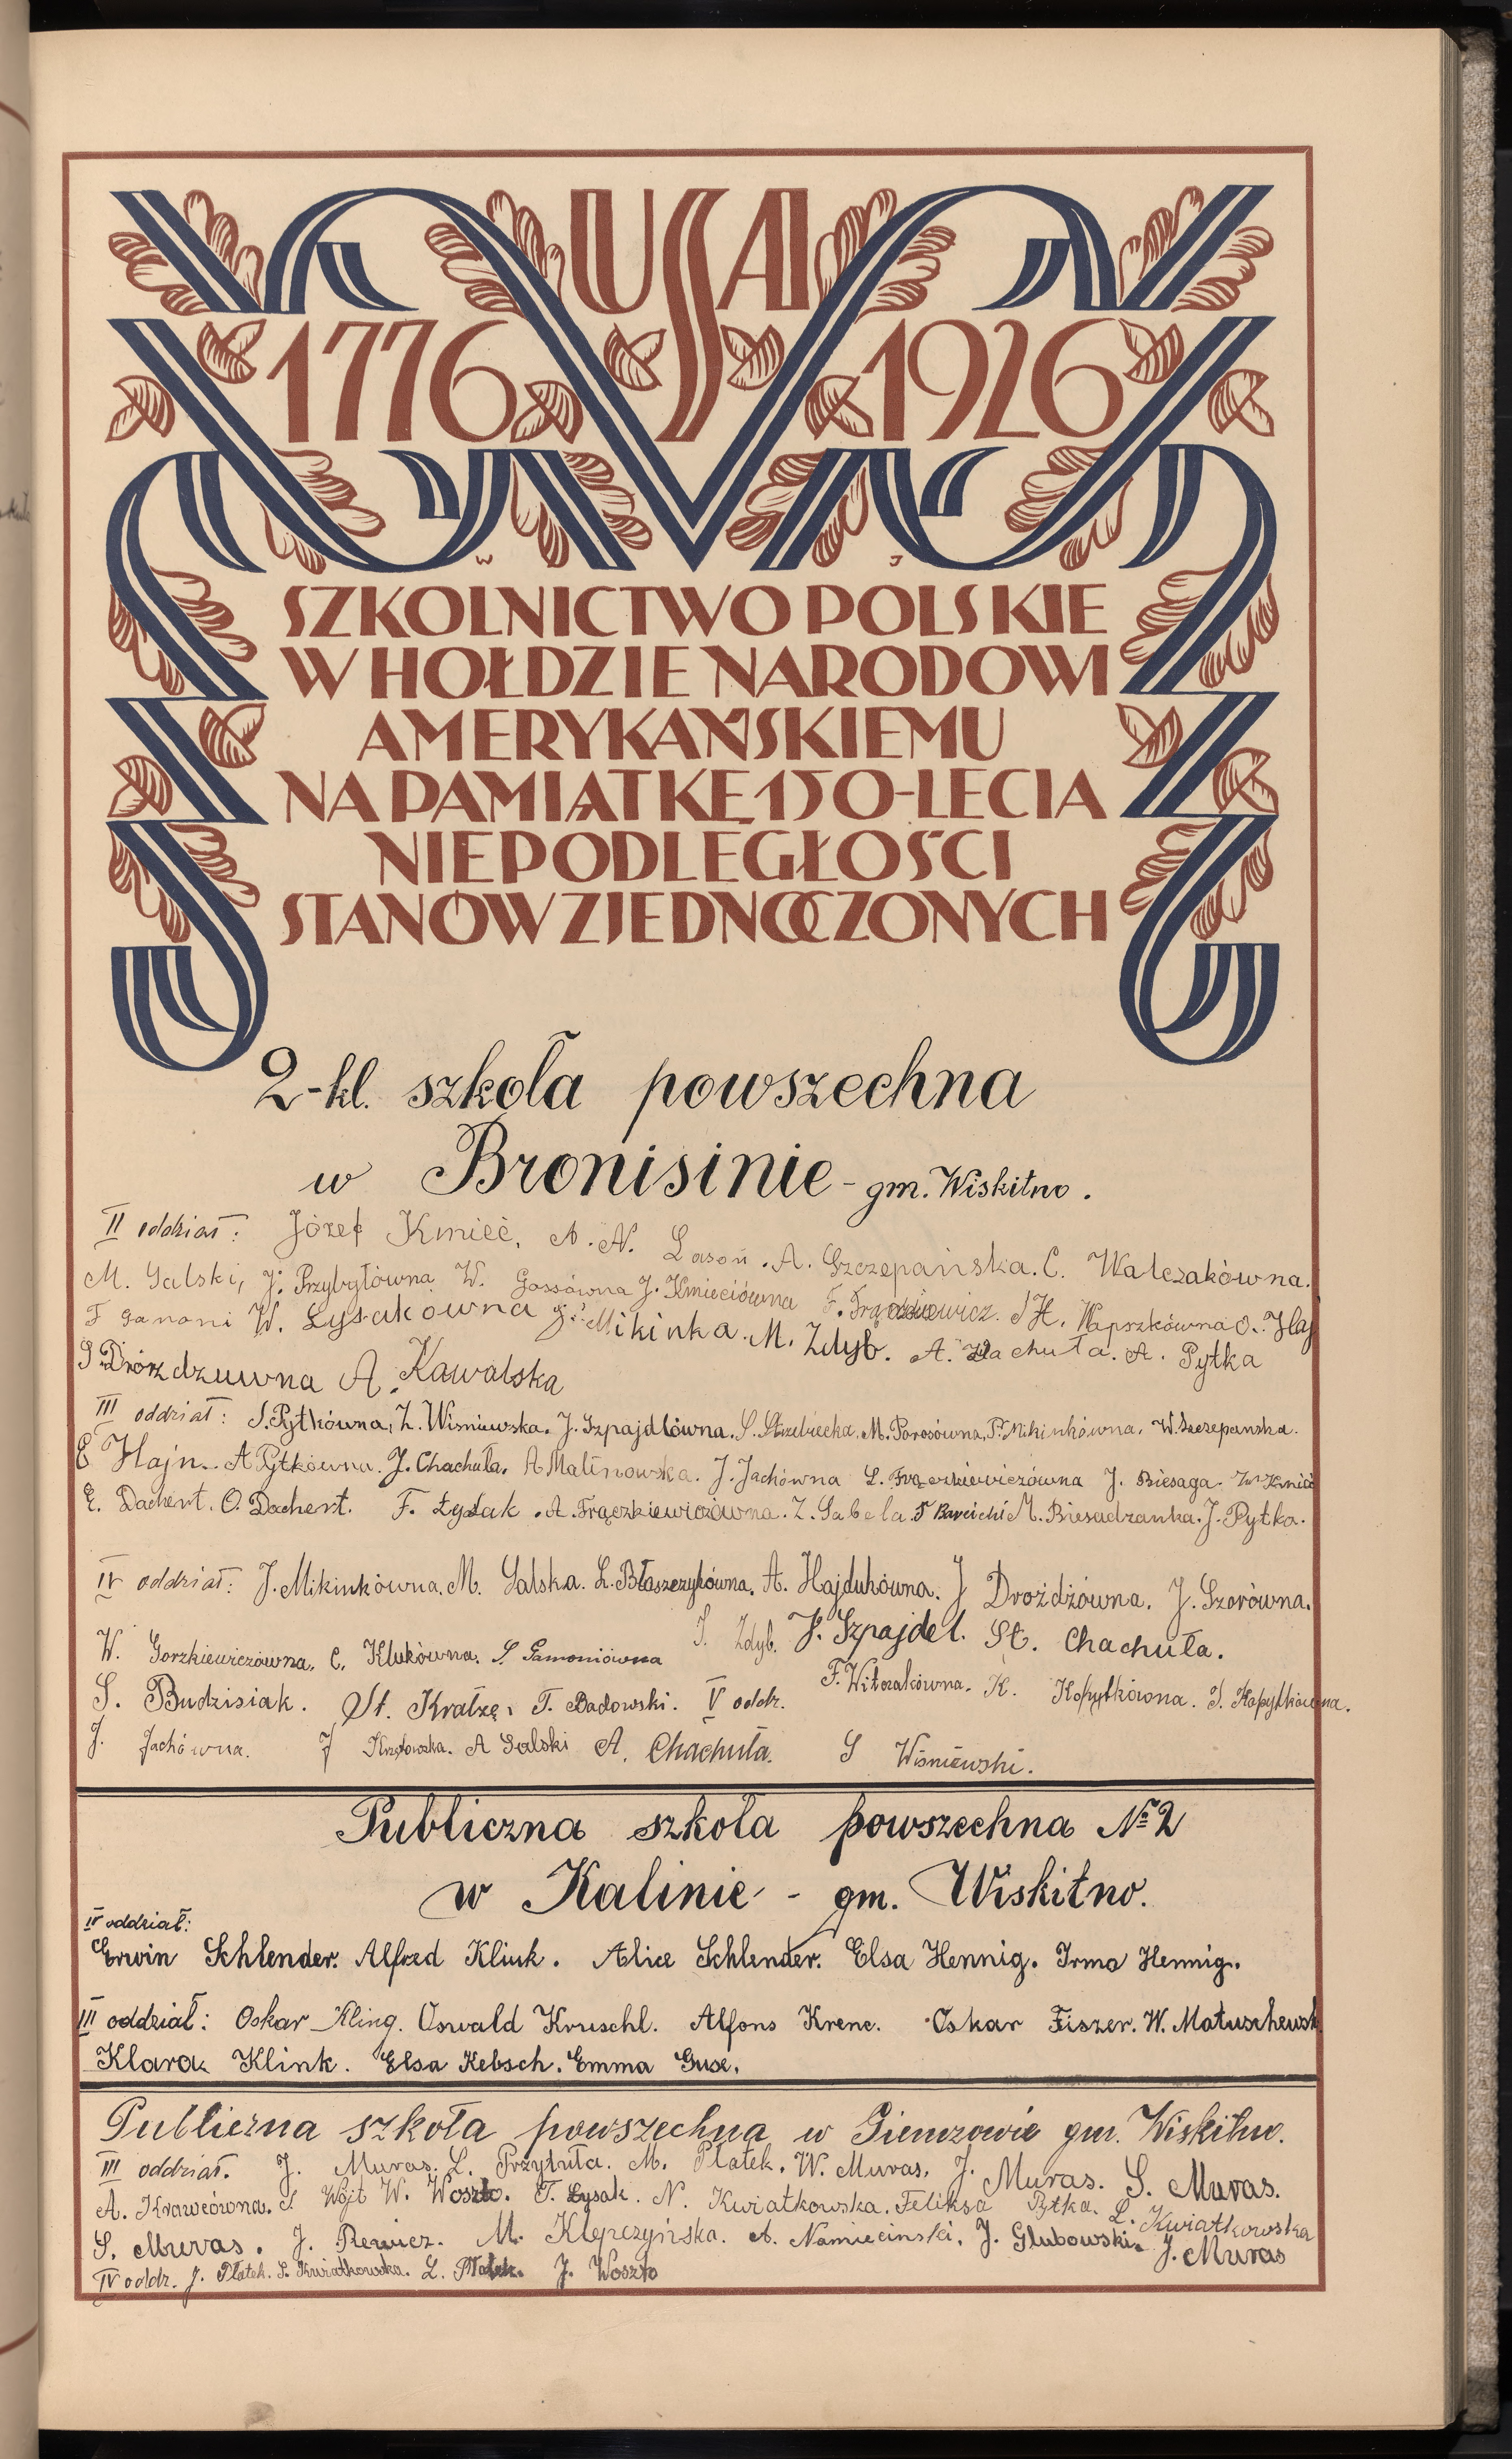 USA
1776 1926
SZKOLNICTWO POLSKIE
W HOŁDZIE NARODOWI
AMERYKAŃSKIEMU
NA PAMIĄTKĘ 150-LECIA
NIEPODLEGŁOŚCI
STANÓW ZJEDNOCZONYCH
2-kl. szkoła powszechna
w Bronisinie - gm. Wiskitno.
II oddział: Józef Kmieć, A. N. Lasoń. A. Szczepańska. C. Walczakówna.
M. Galski, J. Przybyłówna W. Gossówna J. Kmieciówna F. H. Wapszkówna O. Haj
F Ganoni W. Łysakówna J. Mikinka. M. Zdyb. A. Chachuła. A. Pytka
S Drórzdzuwna A. Kawalska
III oddział: S. Pytkówna, Z. Wiśniewska. J. Szpajdlówna. S. Strzelzecka. M. Porosówna, P. Mikinkówna. W. Szczepanska.
E Hajn. A Pytkówna. J. Chachuła. A Malinowska. J. Jachówna L. Frączkiewiczówna J. Biesaga. Kmieć
E. Dachert. O. Dachert. F. Łysak. A. Frączkiewiczówna. Z. Gabela. T Bareicki M. Biesadzanka. J. Pytka.
IV oddział: J. Mikinkówna. M. Galska. L. Błaszczykówna. A. Hajdukówna. J Drożdżówna. J. Szorówna.
W. Gorzkiewiczówna. C. Klukówna. S. Gamoniówna S. Zdyb. J. Szpajdel. St. Chachuła.
S. Budzisiak. St. Kratzę, T. Badowski. V oddz. F. Witczakówna. K. Kopytkówna. S. Kopytkówna.
J. Jachówna. J A Galski A. Chachuła. S Wiśniewski.
Publiczna szkoła powszechna № 2
w Kalinie - gm. Wiskitno.
IV oddział:
Erwin Schlender. Alfred Klink. Alice Schlender. Elsa Hennig. Irma Hennig.
III oddział: Oskar Kling. Oswald Kruschl. Alfons Krenc. Oskar Fiszer. W. Matuschewsk
Klara Klink. Elsa Kebsch. Emma Guse.
Publiczna szkoła powszechna w Giemzowie gm. Wiskitno.
III oddział. J. Muras. L. Przytuła. M. Płatek. W. Muras. J. Muras. S. Muras.
A. Krawcówna. S Wójt W. Woszto. T. Łysak. N. Kwiatkowska. Feliksa Pytka. L. Kwiatkowska
S. Muras. J. Rewicz. M. Klepczyńska. A. Namiecinski. J. Glubowski. J. Muras
IV oddz. J. Płatek. S. Kwiatkowska. L. Płatek. J. Woszto